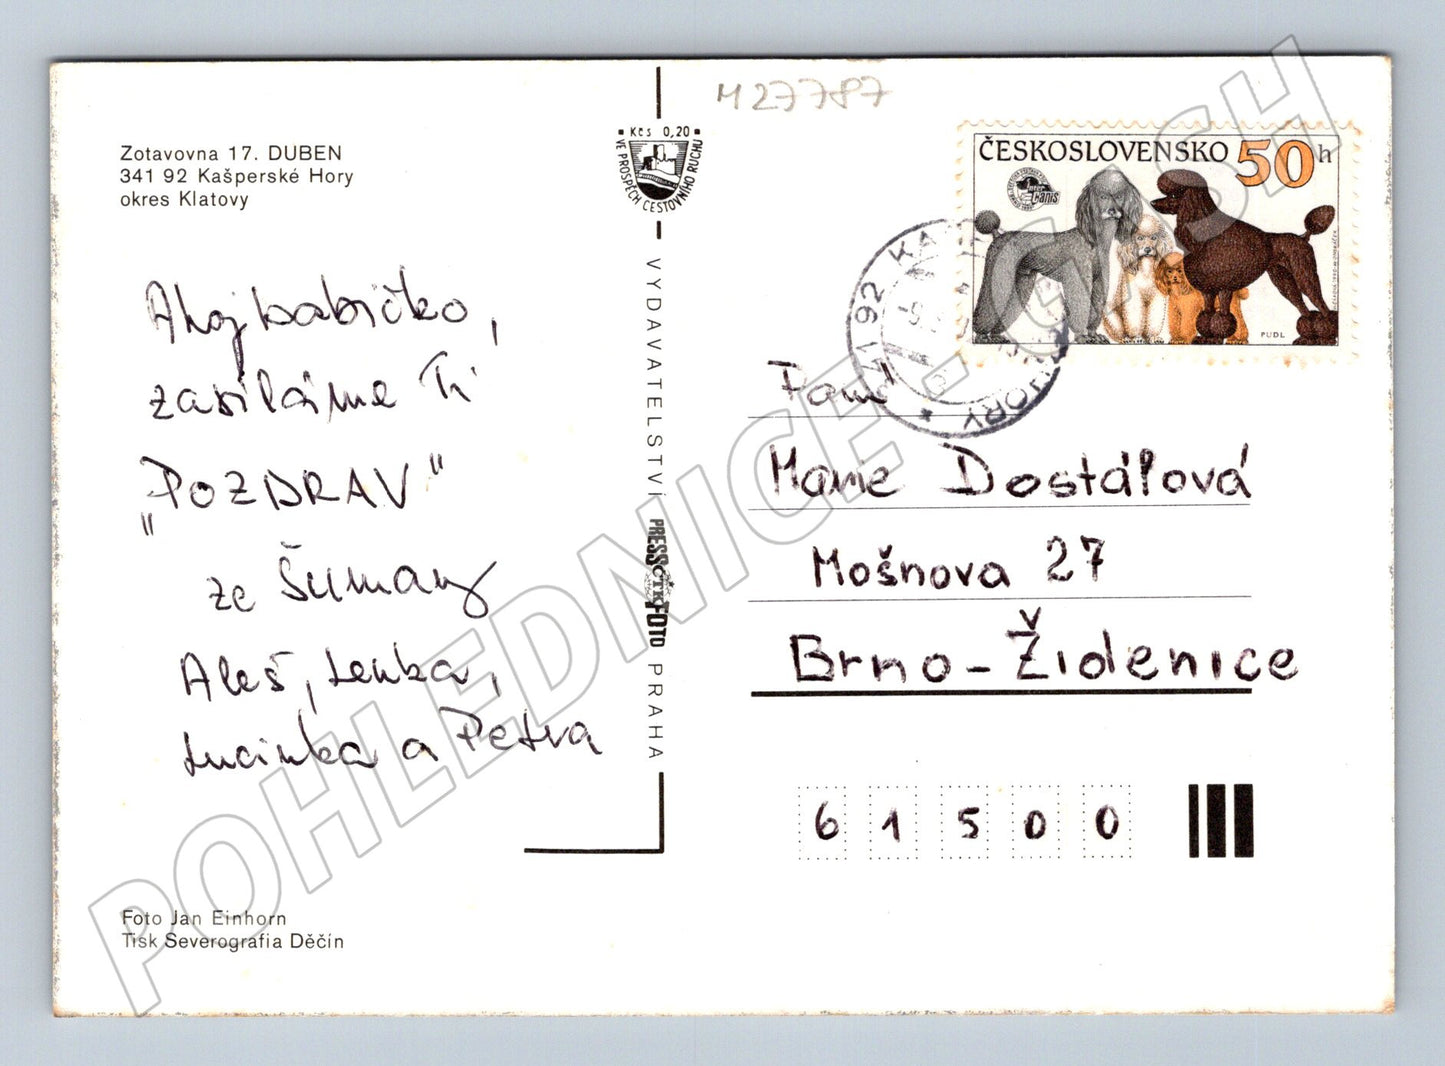 M27787
Zotavovna 17. DUBEN
341 92 Kašperské Hory
okres Klatovy
Ahoj babičko,
zasíláme Ti
„POZDRAV“
ze Šumavy
Aleš, Lenka,
Lucinka a Petra
Foto Jan Einhorn
Tisk Severografia Děčín
Kčs 0,20
VE PROSPĚCH CESTOVNÍHO RUCHU
VYDAVATELSTVÍ PRESSFOTO PRAHA
ČTK
ČESKOSLOVENSKO 50 h
Inter Canis
PUDL
341 92 KA
HORY
Paní
Marie Dostálová
Mošnova 27
Brno-Židenice
61500
POHLEDNICE.CASH